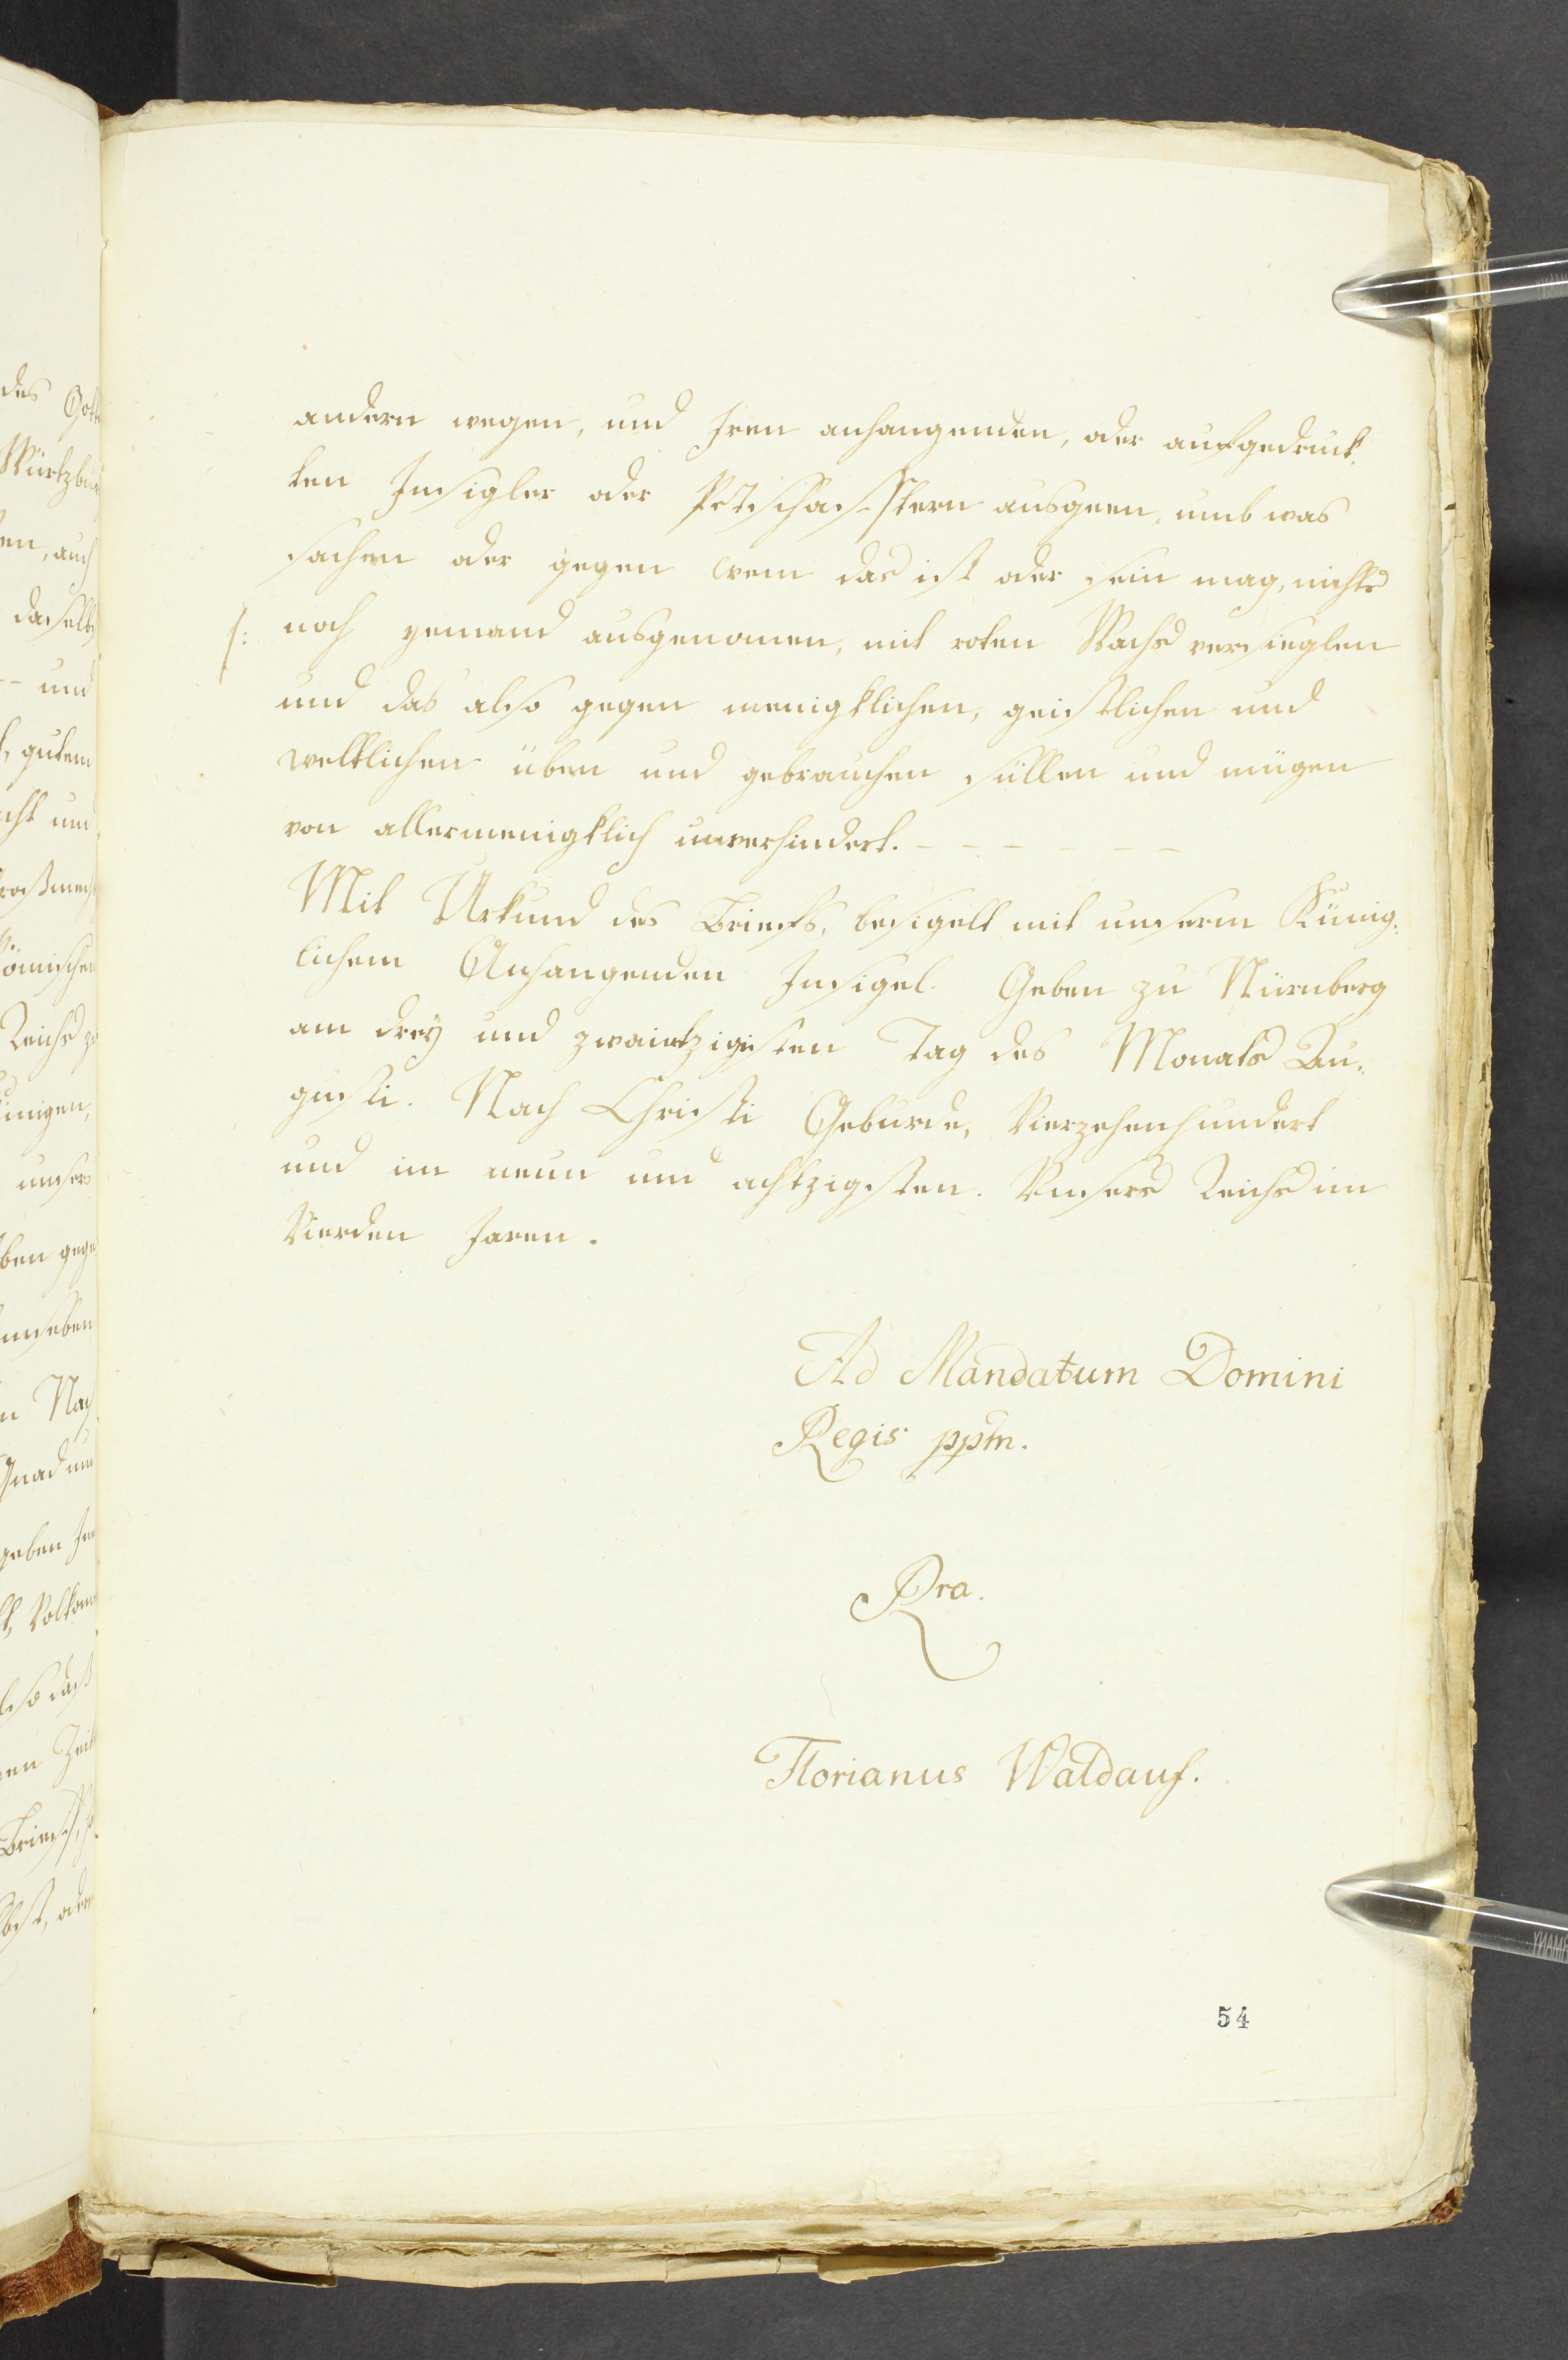 andern wegen, und Iren anhangenden, oder aufgedruck-
ten Insigler oder Petschafftern ausgeen, umb was
sachen oder gegen wem das ist oder sein mag, nichts
/: noch yemand ausgenomen, mit roten Wachs versieglen
und das also gegen menigklichen, geistlichen und
weltlichen üben und gebrauchen süllen und mügen
von allermenigklich unverhindert. - - - - - - -
Mit Urkund des Brieffs, besigelt mit unserm Künig-
lichem Anhangenden Insigel. Geben zu Nürnberg
am drey und zwaintzigisten Tag des Monats Au-
gusti. Nach Christi Geburde, Vierzehenhundert
und im neun und achtzigsten. Unsers Reichs im
Vierden Jaren.
Ad Mandatum Domini
Regis ppm.
Rra.
Florianus Waldauf.
54